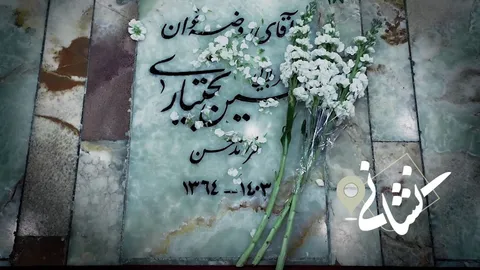 آقای روضه خوان
حسین بختیاری
فرزند حسن
۱۳۶۴--۱۴۰۳
نشانی